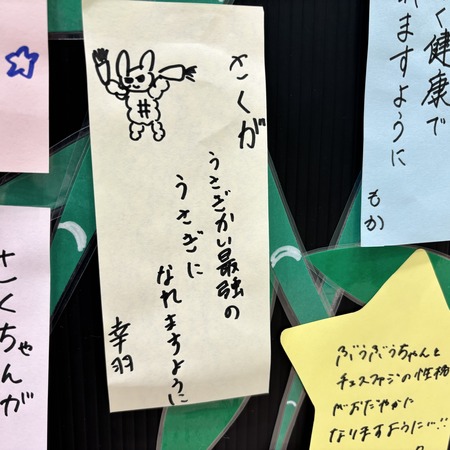 さくが
うさぎかい最強の
うさぎに
なれますように
幸羽
く健康で
ますように
もか
さくちゃんが
ぷうぷうちゃんと
チェスファジの性格
がおだやかに
なりますように…!!